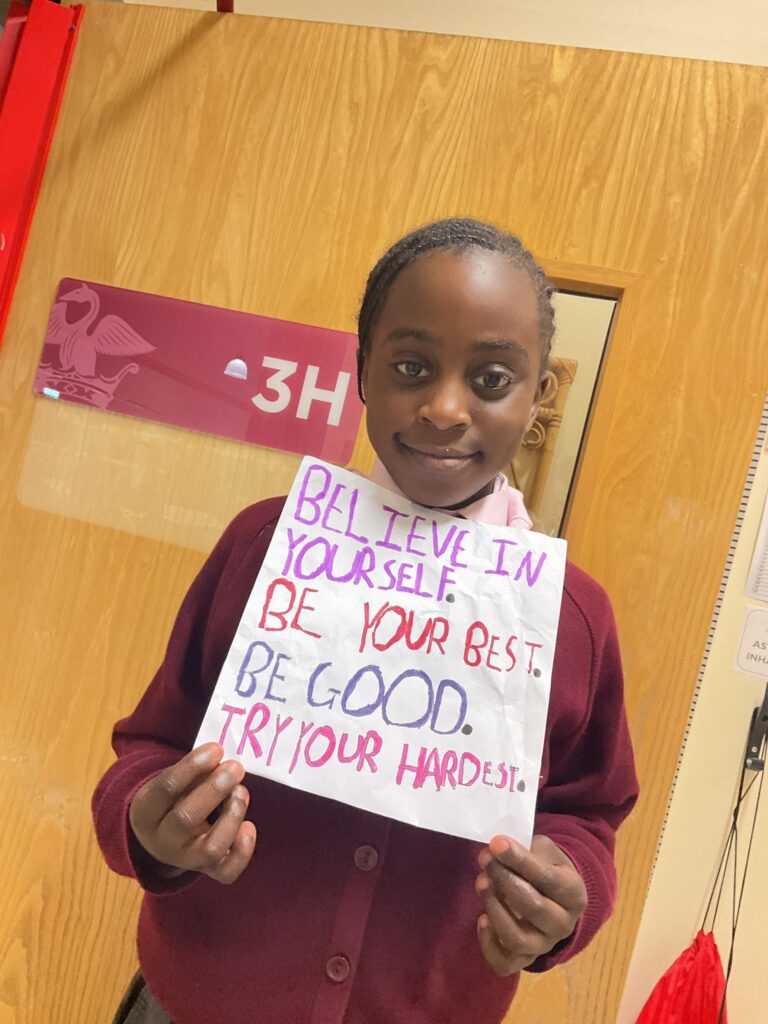 3H
BELIEVE IN
YOURSELF.
BE YOUR BEST.
BE GOOD.
TRY YOUR HARDEST.
AS
INH